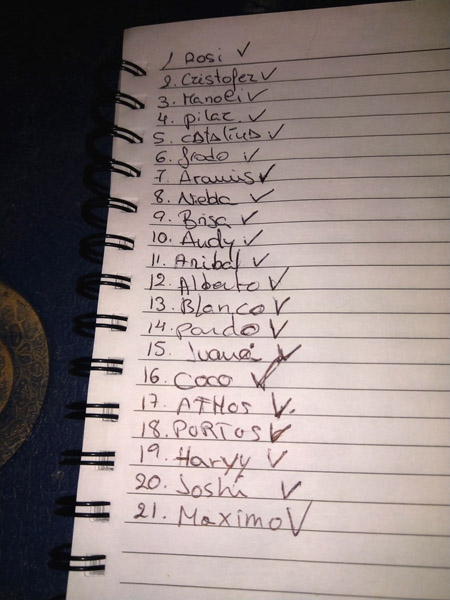 1. Rosi ✓
2. Cristofer ✓
3. Manoli ✓
4. pilar. ✓
5. CATALINA ✓
6. frodo ✓
7. Aramis ✓
8. Niebla ✓
9. Brisa ✓
10. Audy ✓
11. Anibal ✓
12. Alberto ✓
13. Blanco ✓
14. pardo ✓
15. Juanai ✓
16. Coco ✓
17. ATHOS ✓.
18. PORTOS ✓
19. Haryy ✓
20. Joshi ✓
21. Maximo ✓